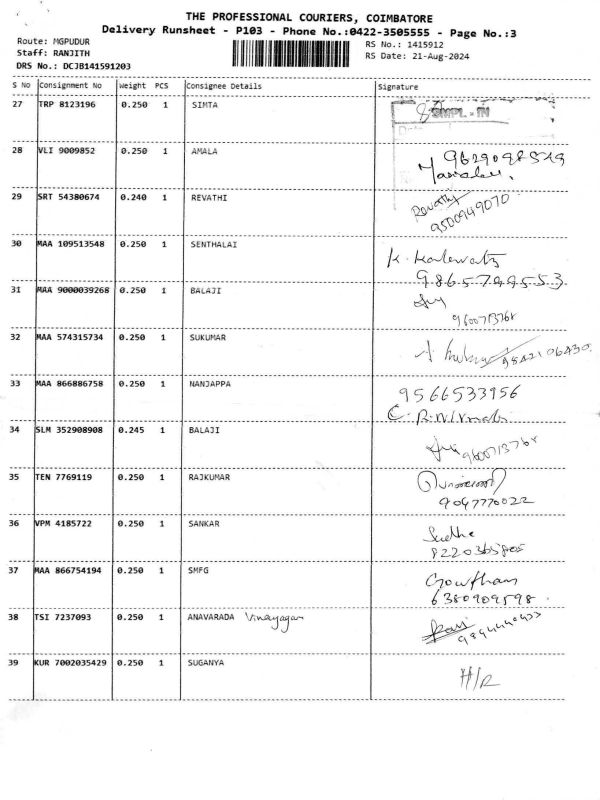 THE PROFESSIONAL COURIERS, COIMBATORE
Delivery Runsheet - P103 - Phone No.:0422-3505555 - Page No.:3
Route: MGPUDUR
RS No.: 1415912
Staff: RANJITH
RS Date: 21-Aug-2024
DRS No.: DCJB141591203
S No Consignment No Weight PCS Consignee Details Signature
27 TRP 8123196 0.250 1 SIMTA SMPL - IN
28 VLI 9009852 0.250 1 AMALA
29 SRT 54380674 0.240 1 REVATHI Revathy
9500949070
30 MAA 109513548 0.250 1 SENTHALAI
9865799553
31 MAA 9000039268 0.250 1 BALAJI
9600713768
32 MAA 574315734 0.250 1 SUKUMAR
33 MAA 866886758 0.250 1 NANJAPPA 9566533956
34 SLM 352908908 0.245 1 BALAJI
9600713768
35 TEN 7769119 0.250 1 RAJKUMAR
9047770022
36 VPM 4185722 0.250 1 SANKAR Sudha
37 MAA 866754194 0.250 1 SMFG Gowtham
6380909598
38 TSI 7237093 0.250 1 ANAVARADA Vinayagar
39 KUR 7002035429 0.250 1 SUGANYA H/R